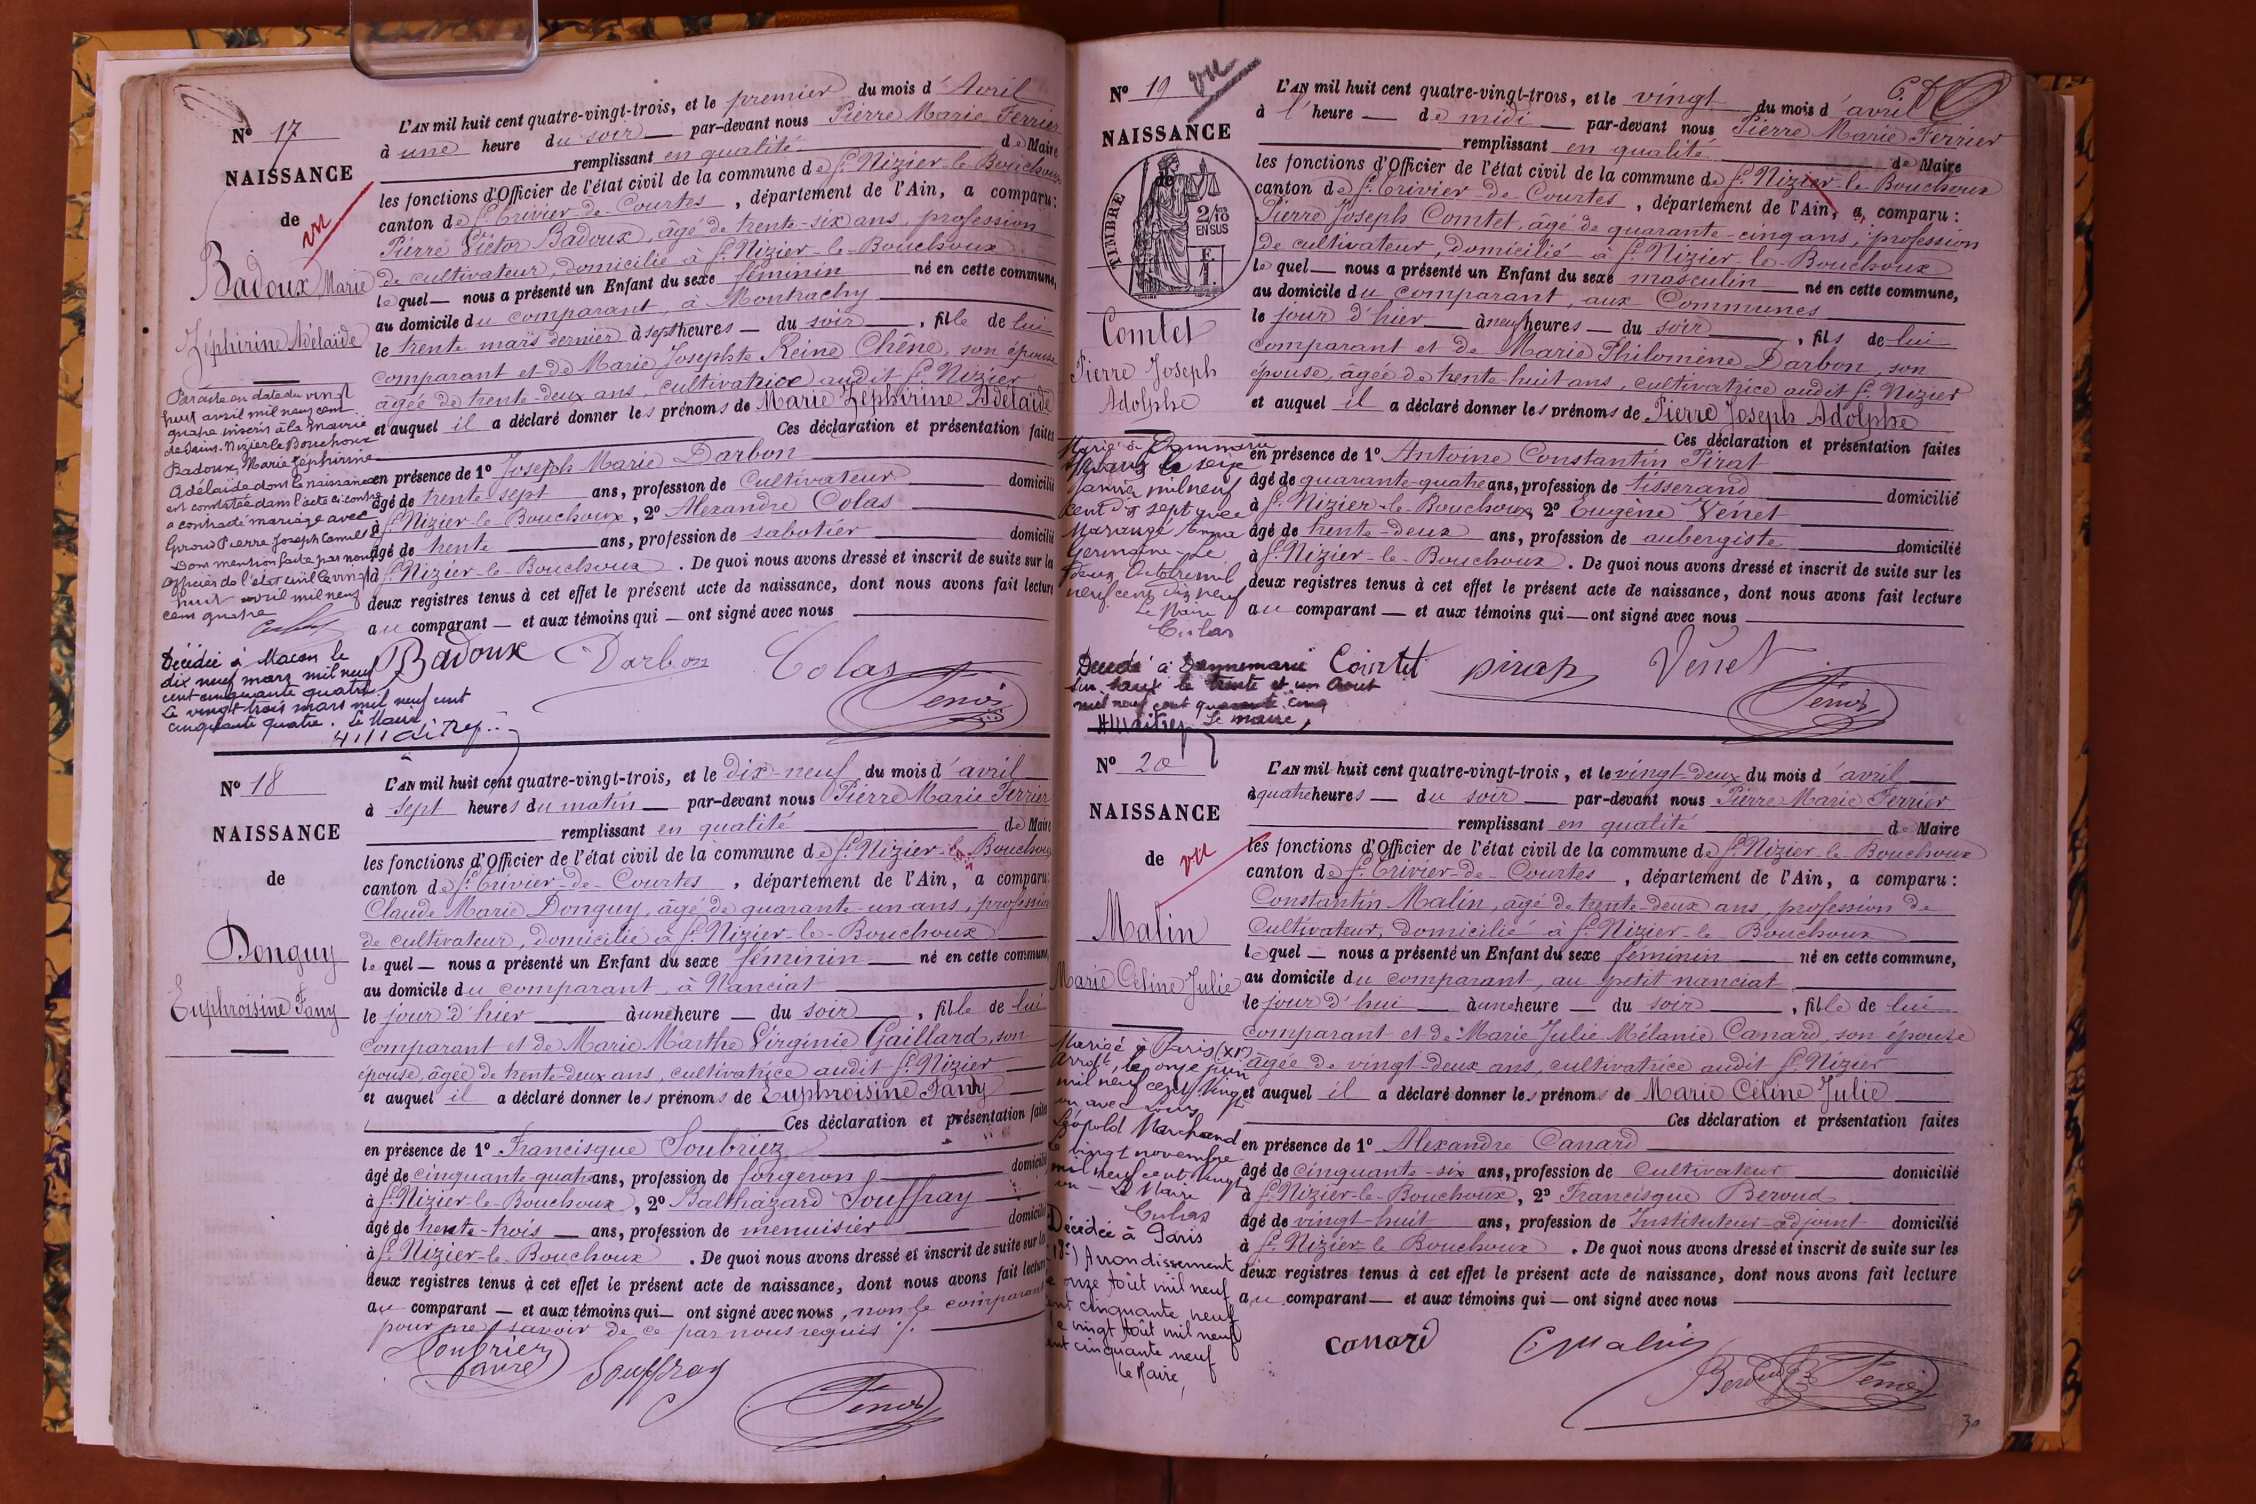 Nº 17
NAISSANCE
de
vu
Badoux Marie
Zéphirine Adélaïde
Par acte en date du vingt
huit avril mil neuf cent
quatre inscrit à la mairie
de Saint-Nizier le Bouchoux
Badoux Marie Zéphirine
Adélaïde dont la naissance
est constatée dans l'acte ci-contre
a contracté mariage avec
Giroud Pierre Joseph Camille
Dont mention faite par nous
Officier de l'état civil le vingt
huit avril mil neuf
cent quatre
Décédée à Macon le
dix neuf mars mil neuf
cent cinquante quatre.
Le vingt trois mars mil neuf cent
cinquante quatre. Le Maire
L'AN mil huit cent quatre-vingt-trois, et le premier du mois d'Avril
à une heure du soir par-devant nous Pierre Marie Ferrier
remplissant en qualité de Maire
les fonctions d'Officier de l'état civil de la commune de St Nizier-le-Bouchoux
canton de St Trivier-de-Courtes, département de l'Ain, a comparu:
Pierre Victor Badoux, âgé de trente-six ans, profession
de cultivateur, domicilié à St Nizier-le-Bouchoux
lequel nous a présenté un Enfant du sexe féminin né en cette commune,
au domicile du comparant, à Montrachy
le trente mars dernier à sept heures du soir, fille de lui
comparant et de Marie Josephte Reine Chêne, son épouse
âgée de trente-deux ans, cultivatrice audit St Nizier
et auquel il a déclaré donner les prénoms de Marie Zéphirine Adélaïde
Ces déclaration et présentation faites
en présence de 1º Joseph Marie Darbon
âgé de trente sept ans, profession de Cultivateur domicilié
à St Nizier-le-Bouchoux, 2º Alexandre Colas
âgé de trente ans, profession de sabotier domicilié
à St Nizier-le-Bouchoux. De quoi nous avons dressé et inscrit de suite sur les
deux registres tenus à cet effet le présent acte de naissance, dont nous avons fait lecture
au comparant et aux témoins qui ont signé avec nous
Badoux Darbon Colas
Ferrier
Nº 18
NAISSANCE
de
Donguy
Euphroisine Fany
L'AN mil huit cent quatre-vingt-trois, et le dix-neuf du mois d'avril
à sept heures du matin par-devant nous Pierre Marie Ferrier
remplissant en qualité de Maire
les fonctions d'Officier de l'état civil de la commune de St Nizier-le-Bouchoux
canton de St Trivier-de-Courtes, département de l'Ain, a comparu:
Claude Marie Donguy, âgé de quarante-un ans, profession
de cultivateur, domicilié à St Nizier-le-Bouchoux
lequel nous a présenté un Enfant du sexe féminin né en cette commune,
au domicile du comparant, à Nanciat
le jour d'hier à une heure du soir, fille de lui
comparant et de Marie Marthe Virginie Gaillard, son
épouse, âgée de trente-deux ans, cultivatrice audit St Nizier
et auquel il a déclaré donner les prénoms de Euphroisine Fany
Ces déclaration et présentation faites
en présence de 1º Francisque Soubriez
âgé de cinquante quatre ans, profession de forgeron domicilié
à St Nizier-le-Bouchoux, 2º Balthazard Souffray
âgé de trente-trois ans, profession de menuisier domicilié
à St Nizier-le-Bouchoux. De quoi nous avons dressé et inscrit de suite sur les
deux registres tenus à cet effet le présent acte de naissance, dont nous avons fait lecture
au comparant et aux témoins qui ont signé avec nous, non le comparant
pour ne savoir de ce par nous requis
Soubriez Souffray
Ferrier
Nº 19
vu
NAISSANCE
de
TIMBRE
2/10
EN SUS
Comtet
Pierre Joseph
Adolphe
Marié à Dannemarie
janvier mil neuf
cent dix sept avec
Marangé Emma
Germaine
deux Octobre mil
neuf cent dix neuf
Le Maire
Décédé à Dannemarie
sur Saux le trente et un Aout
mil neuf cent quarante cinq
Le maire,
L'AN mil huit cent quatre-vingt-trois, et le vingt du mois d'avril
à l'heure de midi par-devant nous Pierre Marie Ferrier
remplissant en qualité de Maire
les fonctions d'Officier de l'état civil de la commune de St Nizier-le-Bouchoux
canton de St Trivier-de-Courtes, département de l'Ain, a comparu:
Pierre Joseph Comtet, âgé de quarante-cinq ans, profession
de cultivateur, domicilié à St Nizier-le-Bouchoux
lequel nous a présenté un Enfant du sexe masculin né en cette commune,
au domicile du comparant, aux Communes
le jour d'hier à neuf heures du soir, fils de lui
comparant et de Marie Philomène Darbon, son
épouse, âgée de trente-huit ans, cultivatrice audit St Nizier
et auquel il a déclaré donner les prénoms de Pierre Joseph Adolphe
Ces déclaration et présentation faites
en présence de 1º Antoine Constantin Pirat
âgé de quarante-quatre ans, profession de tisserand domicilié
à St Nizier-le-Bouchoux, 2º Eugène Venet
âgé de trente-deux ans, profession de aubergiste domicilié
à St Nizier-le-Bouchoux. De quoi nous avons dressé et inscrit de suite sur les
deux registres tenus à cet effet le présent acte de naissance, dont nous avons fait lecture
au comparant et aux témoins qui ont signé avec nous
Comtet pirat Venet
Ferrier
Nº 20
NAISSANCE
de
vu
Malin
Marie Céline Julie
Marigé à Paris (XI)
Arrdt, le onze juin
mil neuf cent vingt
un avec Louis
Léopold Marchand
Le vingt novembre
mil neuf cent vingt
un Le Maire
Décédée à Paris
(18e) Arrondissement
le onze Août mil neuf
cent cinquante neuf
le vingt Août mil neuf
cent cinquante neuf
le Maire,
L'AN mil huit cent quatre-vingt-trois, et le vingt-deux du mois d'avril
à quatre heures du soir par-devant nous Pierre Marie Ferrier
remplissant en qualité de Maire
les fonctions d'Officier de l'état civil de la commune de St Nizier-le-Bouchoux
canton de St Trivier-de-Courtes, département de l'Ain, a comparu:
Constantin Malin, âgé de trente-deux ans, profession de
Cultivateur, domicilié à St Nizier-le-Bouchoux
lequel nous a présenté un Enfant du sexe féminin né en cette commune,
au domicile du comparant, au petit nanciat
le jour d'hui à une heure du soir, fille de lui
comparant et de Marie Julie Mélanie Canard, son épouse
âgée de vingt-deux ans, cultivatrice audit St Nizier
et auquel il a déclaré donner les prénoms de Marie Céline Julie
Ces déclaration et présentation faites
en présence de 1º Alexandre Canard
âgé de cinquante-six ans, profession de Cultivateur domicilié
à St Nizier-le-Bouchoux, 2º Francisque Beroud
âgé de vingt-huit ans, profession de Instituteur-adjoint domicilié
à St Nizier le Bouchoux. De quoi nous avons dressé et inscrit de suite sur les
deux registres tenus à cet effet le présent acte de naissance, dont nous avons fait lecture
au comparant et aux témoins qui ont signé avec nous
canard C Malin
Beroud Ferrier